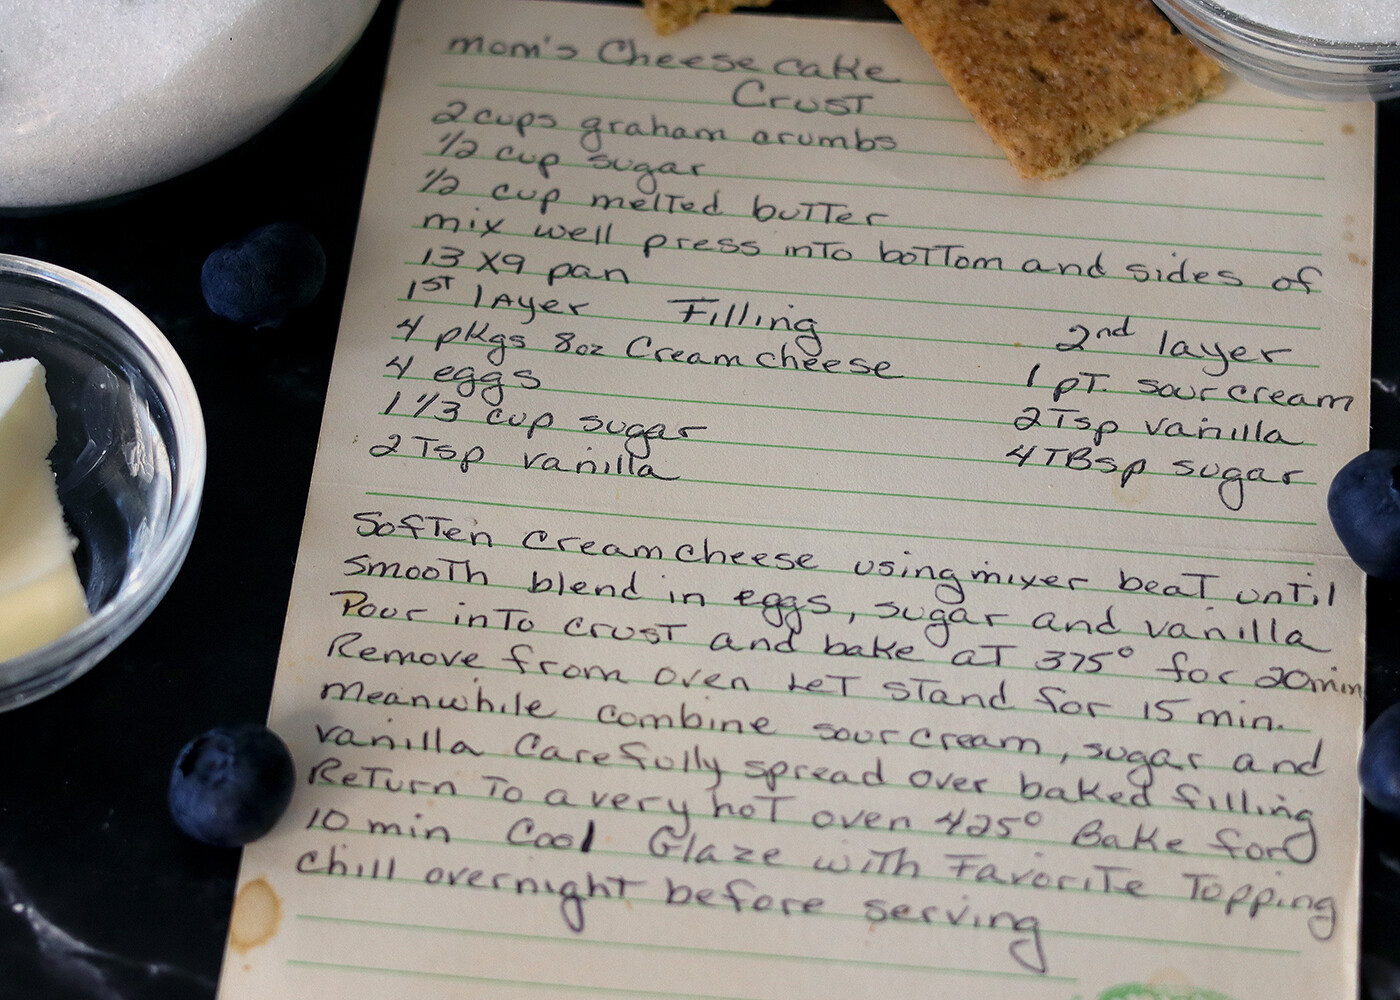 mom's Cheese cake
Crust
2 cups graham crumbs
1/2 cup sugar
1/2 cup melted butter
mix well press into bottom and sides of
13 x9 pan
1st layer Filling 2nd layer
4 pkgs 8oz Cream cheese 1 pt. sour cream
4 eggs 2 Tsp vanilla
1 1/3 cup sugar 4 TBsp sugar
2 Tsp vanilla
Soften cream cheese using mixer beat until
smooth blend in eggs, sugar and vanilla
Pour into crust and bake at 375° for 20 min
Remove from oven Let stand for 15 min.
meanwhile combine sour cream, sugar and
vanilla Carefully spread over baked filling
Return to a very hot oven 425° Bake for
10 min Cool Glaze with Favorite Topping
chill overnight before serving